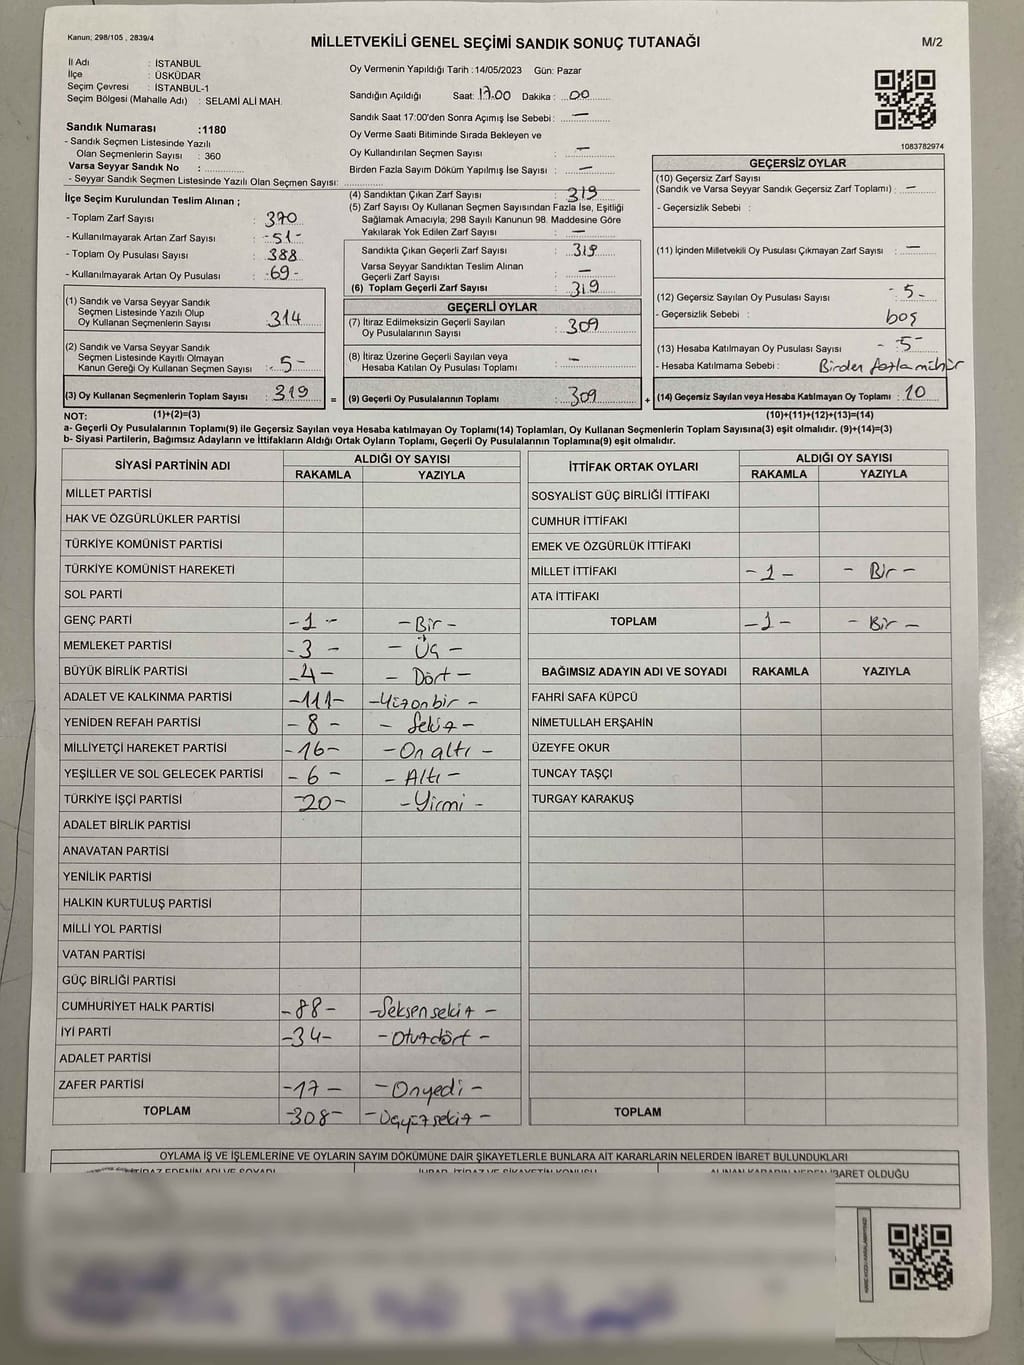 Kanun; 298/105 , 2839/4
MİLLETVEKİLİ GENEL SEÇİMİ SANDIK SONUÇ TUTANAĞI
M/2
İl Adı : İSTANBUL
İlçe : ÜSKÜDAR
Seçim Çevresi : İSTANBUL-1
Seçim Bölgesi (Mahalle Adı) : SELAMİ ALİ MAH.
Sandık Numarası :1180
- Sandık Seçmen Listesinde Yazılı
Olan Seçmenlerin Sayısı : 360
Varsa Seyyar Sandık No :
- Seyyar Sandık Seçmen Listesinde Yazılı Olan Seçmen Sayısı:
İlçe Seçim Kurulundan Teslim Alınan ;
- Toplam Zarf Sayısı : 370
- Kullanılmayarak Artan Zarf Sayısı : -51-
- Toplam Oy Pusulası Sayısı : 388
- Kullanılmayarak Artan Oy Pusulası : -69-
(1) Sandık ve Varsa Seyyar Sandık
Seçmen Listesinde Yazılı Olup
Oy Kullanan Seçmenlerin Sayısı : 314
(2) Sandık ve Varsa Seyyar Sandık
Seçmen Listesinde Kayıtlı Olmayan
Kanun Gereği Oy Kullanan Seçmen Sayısı : 5 -
(3) Oy Kullanan Seçmenlerin Toplam Sayısı : 319
Oy Vermenin Yapıldığı Tarih :14/05/2023 Gün: Pazar
Sandığın Açıldığı Saat: 17.00 Dakika : 00
Sandık Saat 17:00'den Sonra Açımış İse Sebebi : —
Oy Verme Saati Bitiminde Sırada Bekleyen ve
Oy Kullandırılan Seçmen Sayısı : —
Birden Fazla Sayım Döküm Yapılmış İse Sayısı : —
(4) Sandıktan Çıkan Zarf Sayısı : 319
(5) Zarf Sayısı Oy Kullanan Seçmen Sayısından Fazla İse, Eşitliği
Sağlamak Amacıyla; 298 Sayılı Kanunun 98. Maddesine Göre
Yakılarak Yok Edilen Zarf Sayısı : —
Sandıkta Çıkan Geçerli Zarf Sayısı : 319
Varsa Seyyar Sandıktan Teslim Alınan
Geçerli Zarf Sayısı : —
(6) Toplam Geçerli Zarf Sayısı : 319
GEÇERLİ OYLAR
(7) İtiraz Edilmeksizin Geçerli Sayılan
Oy Pusulalarının Sayısı : 309
(8) İtiraz Üzerine Geçerli Sayılan veya
Hesaba Katılan Oy Pusulası Toplamı : —
= (9) Geçerli Oy Pusulalarının Toplamı : 309
1083782974
GEÇERSİZ OYLAR
(10) Geçersiz Zarf Sayısı
(Sandık ve Varsa Seyyar Sandık Geçersiz Zarf Toplamı) : —
- Geçersizlik Sebebi :
(11) İçinden Milletvekili Oy Pusulası Çıkmayan Zarf Sayısı : —
(12) Geçersiz Sayılan Oy Pusulası Sayısı : - 5 -
- Geçersizlik Sebebi : boş
(13) Hesaba Katılmayan Oy Pusulası Sayısı : - 5 -
- Hesaba Katılmama Sebebi : Birden fazla mühür
+ (14) Geçersiz Sayılan veya Hesaba Katılmayan Oy Toplamı : 10
NOT: (1)+(2)=(3) (10)+(11)+(12)+(13)=(14)
a- Geçerli Oy Pusulalarının Toplamı(9) ile Geçersiz Sayılan veya Hesaba katılmayan Oy Toplamı(14) Toplamları, Oy Kullanan Seçmenlerin Toplam Sayısına(3) eşit olmalıdır. (9)+(14)=(3)
b- Siyasi Partilerin, Bağımsız Adayların ve İttifakların Aldığı Ortak Oyların Toplamı, Geçerli Oy Pusulalarının Toplamına(9) eşit olmalıdır.
SİYASİ PARTİNİN ADI ALDIĞI OY SAYISI
RAKAMLA YAZIYLA
MİLLET PARTİSİ
HAK VE ÖZGÜRLÜKLER PARTİSİ
TÜRKİYE KOMÜNİST PARTİSİ
TÜRKİYE KOMÜNİST HAREKETİ
SOL PARTİ
GENÇ PARTİ -1- -Bir-
MEMLEKET PARTİSİ -3- -Üç-
BÜYÜK BİRLİK PARTİSİ -4- -Dört-
ADALET VE KALKINMA PARTİSİ -111- -Yüzonbir-
YENİDEN REFAH PARTİSİ -8- -Sekiz-
MİLLİYETÇİ HAREKET PARTİSİ -16- -On altı-
YEŞİLLER VE SOL GELECEK PARTİSİ -6- -Altı-
TÜRKİYE İŞÇİ PARTİSİ -20- -Yirmi-
ADALET BİRLİK PARTİSİ
ANAVATAN PARTİSİ
YENİLİK PARTİSİ
HALKIN KURTULUŞ PARTİSİ
MİLLİ YOL PARTİSİ
VATAN PARTİSİ
GÜÇ BİRLİĞİ PARTİSİ
CUMHURİYET HALK PARTİSİ -88- -Seksensekiz-
İYİ PARTİ -34- -Otuzdört-
ADALET PARTİSİ
ZAFER PARTİSİ -17- -Onyedi-
TOPLAM -308- -Üçyüzsekiz-
İTTİFAK ORTAK OYLARI ALDIĞI OY SAYISI
RAKAMLA YAZIYLA
SOSYALİST GÜÇ BİRLİĞİ İTTİFAKI
CUMHUR İTTİFAKI
EMEK VE ÖZGÜRLÜK İTTİFAKI
MİLLET İTTİFAKI -1- -Bir-
ATA İTTİFAKI
TOPLAM -1- -Bir-
BAĞIMSIZ ADAYIN ADI VE SOYADI RAKAMLA YAZIYLA
FAHRİ SAFA KÜPCÜ
NİMETULLAH ERŞAHİN
ÜZEYFE OKUR
TUNCAY TAŞÇI
TURGAY KARAKUŞ
TOPLAM
OYLAMA İŞ VE İŞLEMLERİNE VE OYLARIN SAYIM DÖKÜMÜNE DAİR ŞİKAYETLERLE BUNLARA AİT KARARLARIN NELERDEN İBARET BULUNDUKLARI
İTİRAZ EDENİN ADI VE SOYADI İHBAR, İTİRAZ VE ŞİKAYETİN KONUSU ALINAN KARARIN NEDEN İBARET OLDUĞU